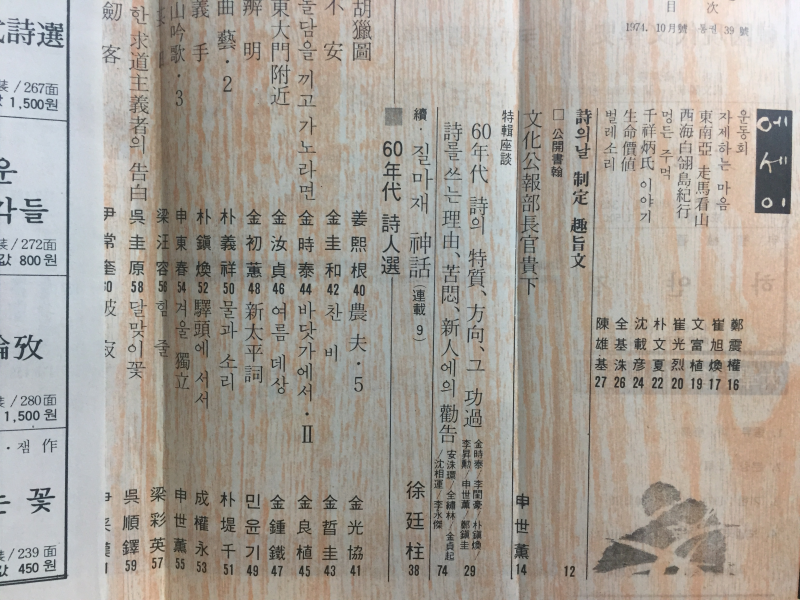 目 次
1974. 10月號 통권 39 號
에세이
운동회 鄭震權 16
자제하는 마음 崔旭煥 17
東南亞 走馬看山 文富植 19
西海白翎島紀行 崔光烈 20
멍든 주먹 朴文夏 22
千祥炳氏 이야기 沈載彦 24
生命價値 全基洙 26
벌레소리 陳雄基 27
詩의 날 制定 趣旨文 12
□ 公開書翰
文化公報部長官貴下 申世薰 14
特輯座談
60年代 詩의 特質、方向、그 功過 金時泰/李閏豪/朴鎭煥 李昇勳/申世薰/鄭鎭圭 29
詩를 쓰는 理由、苦悶、新人에의 勸告 安洙環/全繡林/金貞起/沈相運/李水傑 74
續·질마재 神話(連載 9) 徐廷柱 38
■ 60年代 詩人選
胡獵圖 姜熙根 40 農夫·5 金光協 41
不安 金圭和 42 찬비 金晢圭 43
돌담을 끼고 가노라면 金時泰 44 바닷가에서·Ⅱ 金良植 45
東大門附近 金汝貞 46 여름 데상 金鍾鐵 47
辨明 金初蕙 48 新太平詞 민윤기 49
曲藝·2 朴義祥 50 물과 소리 朴堤千 51
義手 朴鎭煥 52 驛頭에 서서 成權永 53
山吟歌·3 申東春 54 겨울 獨立 申世薰 55
梁汪容 56 힘줄 梁彩英 57
한 求道主義者의 告白 吳圭原 58 달맞이꽃 吳順鐸 59
劒客 尹常奎
詩選
裝/267面
1,500원
운
각들
裝/272面
값 800원
論攷
裝/280面
1,500원
·잼 作
는 꽃
裝/239面
값 450원